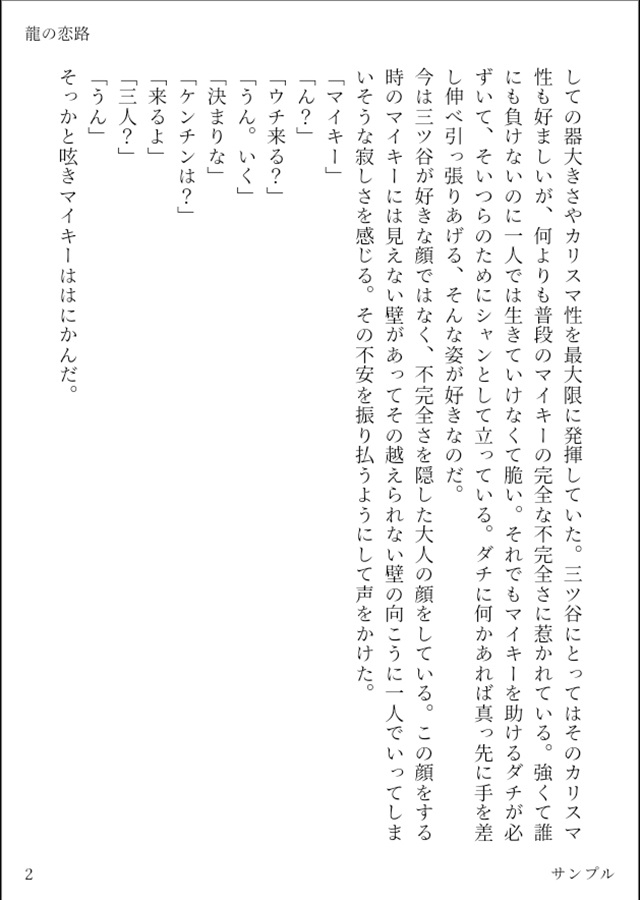 龍の恋路
しての器大きさやカリスマ性を最大限に発揮していた。三ツ谷にとってはそのカリスマ
性も好ましいが、何よりも普段のマイキーの完全な不完全さに惹かれている。強くて誰
にも負けないのに一人では生きていけなくて脆い。それでもマイキーを助けるダチが必
ずいて、そいつらのためにシャンとして立っている。ダチに何かあれば真っ先に手を差
し伸べ引っ張りあげる、そんな姿が好きなのだ。
今は三ツ谷が好きな顔ではなく、不完全さを隠した大人の顔をしている。この顔をする
時のマイキーには見えない壁があってその越えられない壁の向こうに一人でいってしま
いそうな寂しさを感じる。その不安を振り払うようにして声をかけた。
「マイキー」
「ん？」
「ウチ来る？」
「うん。いく」
「決まりな」
「ケンチンは？」
「来るよ」
「三人？」
「うん」
そっかと呟きマイキーははにかんだ。
2
サンプル